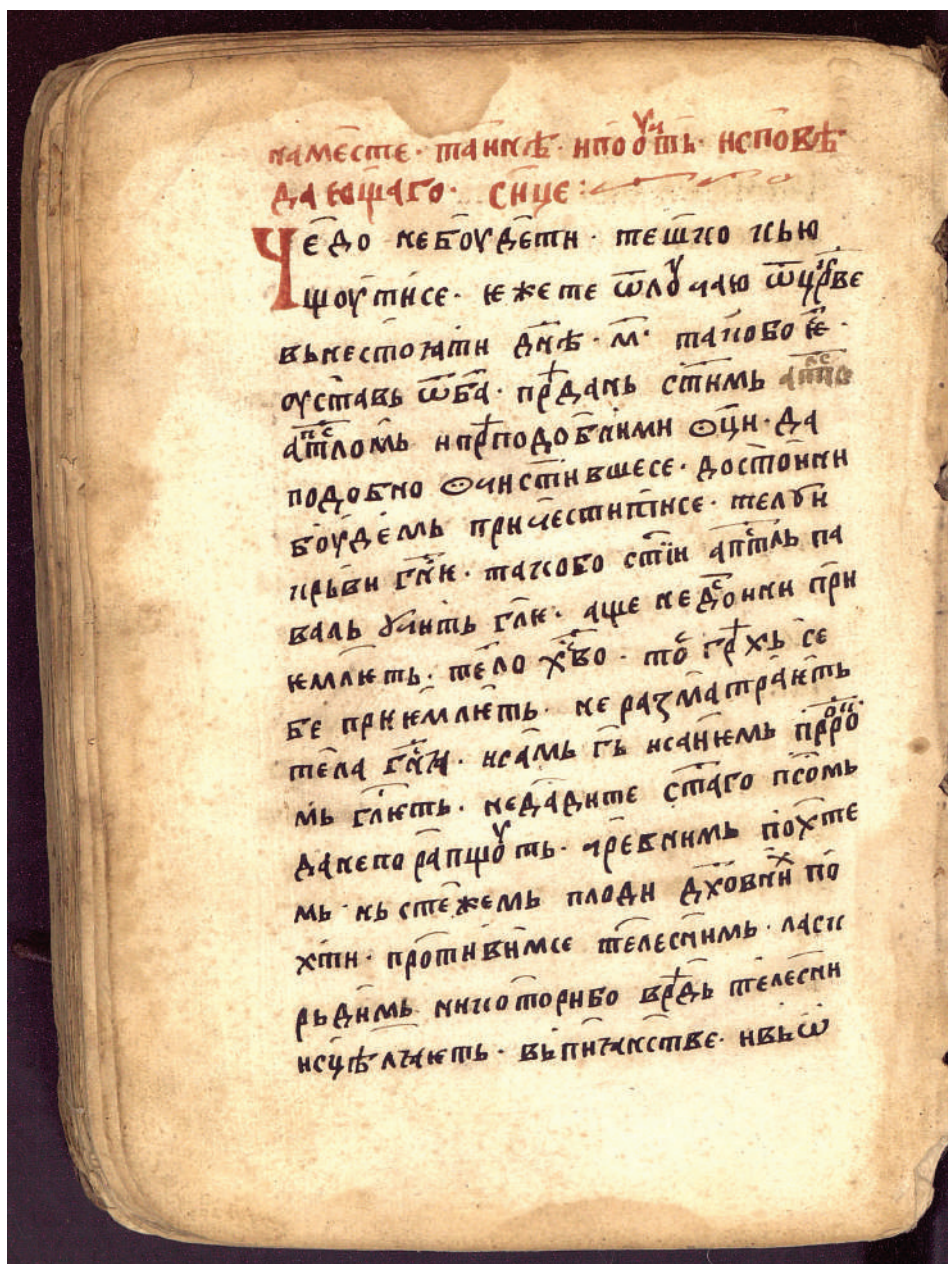 на месте· таинѣ· и пооучть· исповѣ
дающаго· сице:
Чедо не боудети· тешко кью
щоутисе· ѥже те ѿлоучаю ѿ црⷦ҇ве
вьнестоꙗти д҃нѣ· м҃· тако бо ѥ҃·
оуставь ѿ б҃а· прⷣань с҃тимь
ап҃слⷭомь и прⷣподоб҃ними ѻц҃и· да
подобно ѻчистившесе· достоини
боудемь причестит҃исе· телоу и
крьви г҃нѥ· тако бо с҃тїи апⷭ҇тль па
валь оучить г҃лѥ· аще недⷭ҇оини при
ѥмлѥть· тело х҃во· тоⷭ҇ грⷯ҇ѣхь се
бе приѥмлѥть· не разматраѥть
тела г҃нꙗ· и самь г҃ь исаиѥмь прⷪ҇ро
мь г҃лѥть· не дадите с҃таго псомь
да не порапщоуть· чревнимь похоте
мь· нь стежемь плоди д҃ховниⷯ по
хти· противимсе телеснимь· ласк
рьдимь никотори бо врⷣ҇ь телесни
исцѣлꙗѥть· вь пиꙗнстве· и вь ѡ